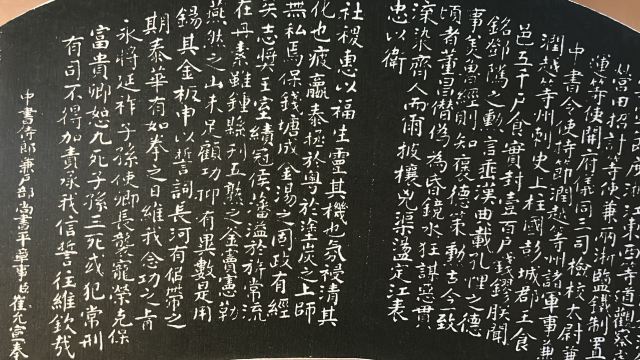 江東西等道觀察
營田招討等使兼兩浙鹽鐵制置
運等使開府儀同三司檢校太尉兼
中書令使持節潤越等州諸軍事兼
潤越等州刺史上柱國彭城郡王食
邑五千戶食實封壹百戶錢鏐朕聞
銘鄧騭之勳言垂漢典載孔悝之德
事美魯經則知褒德策勳古今一致
頃者董昌僭偽為昏鏡水狂謀惡貫
渫染齊人而爾披攘兇渠盪定江表
忠以衛
社稷惠以福生靈其機也氛祲清其
化也疲羸泰拯於粵於塗炭之上師
無私焉保錢塘成金湯之固政有經
矣志獎王室績冠侯藩溢於旂常流
在丹素雖鍾繇刊五熟之釜竇憲勒
燕然之山未足顧功抑有異數是用
錫其金板申以誓詞長河有似帶之
期泰華有如拳之日維我念功之旨
永將延祚子孫使卿長襲寵榮克保
富貴卿恕九死子孫三死或犯常刑
有司不得加責承我信誓往維欽哉
中書侍郎兼戶部尚書平章事臣崔允宣奉